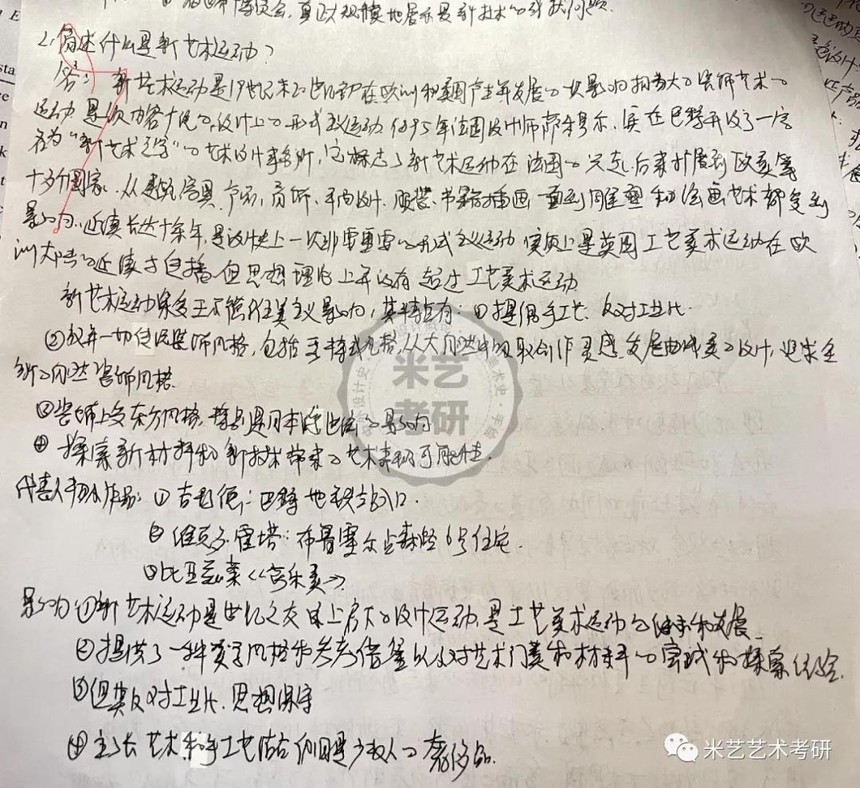 2. 简述什么是新艺术运动?
答: 新艺术运动是19世纪末20世纪初在欧洲和美国产生并发展的一次影响相当大的装饰艺术的
运动,是一次内容十分广泛的设计上的形式主义运动,1895年法国设计师萨穆尔·宾在巴黎开设了一家
名为“新艺术之家”的艺术设计事务所,它标志了新艺术运动在法国的兴起,后来扩展到欧美等
十多个国家。从建筑、家具、产品、首饰、平面设计、服装、书籍插画一直到雕塑和绘画艺术都受到
影响,延续长达十余年,是设计史上一次非常重要的形式主义运动,实质上是英国工艺美术运动在欧
洲大陆的延续与传播,但思想理论上并没有超过工艺美术运动
新艺术运动深受王尔德唯美主义影响,其特点有: ①提倡手工艺,反对工业化.
②放弃一切传统装饰风格,包括哥特式风格,从大自然中汲取创作灵感,发展曲线美的设计,追求全
新的自然装饰风格.
③装饰上受东方风格,尤其是日本浮世绘的影响
④探索新材料和新技术带来的艺术表现可能性.
代表人物和作品: ①吉马德: 巴黎地铁站入口.
②维克多·霍塔: 布鲁塞尔占森路6号住宅.
③比亚兹莱《莎乐美》
影响 ①新艺术运动是世纪之交的上启下的设计运动,是工艺美术运动的继承和发展.
②提供了一种美学风格和参考借鉴以及对艺术门类和材料的尝试和探索经验.
③但其反对工业化,思想保守
④主张艺术和手工艺结合仍旧是少数人的奢侈品.
米艺考研
米艺艺术考研